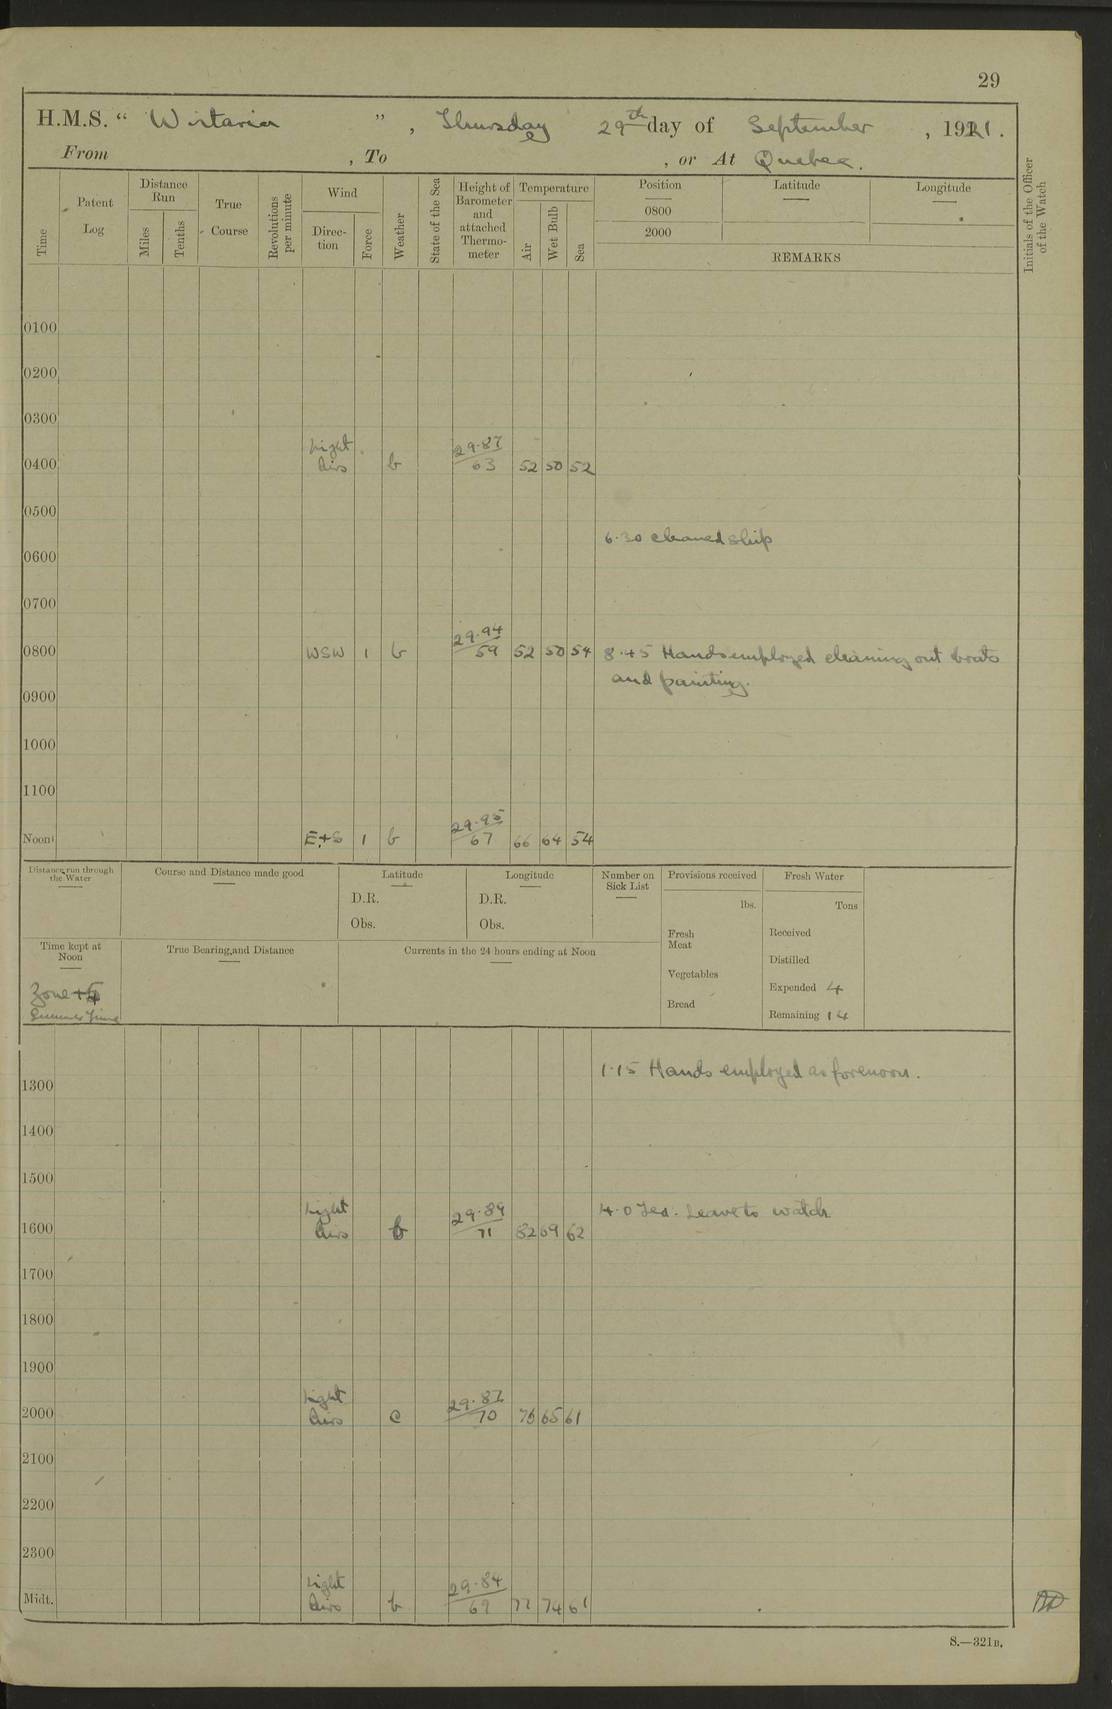 29
H.M.S. “ Wistaria ” , Thursday 29th day of September , 1921.
From , To , or At Quebec.
Time
Patent Log
Distance Run
Miles
Tenths
True Course
Revolutions per minute
Wind
Direc- tion
Force
Weather
State of the Sea
Height of Barometer and attached Thermo- meter
Temperature
Air
Wet Bulb
Sea
Position
Latitude
Longitude
0800
2000
REMARKS
Initials of the Officer of the Watch
0100
0200
0300
Light 29.87
0400 Airs b 63 52 50 52
0500
6.30 cleaned ship
0600
0700
29.94
0800 WSW 1 b 59 52 50 54 8.45 Hands employed cleaning out boats
and painting.
0900
1000
1100
29.95
Noon E+S 1 b 67 66 64 54
Distance run through the Water
Course and Distance made good
Latitude
D.R.
Obs.
Longitude
D.R.
Obs.
Number on Sick List
Provisions received
lbs.
Fresh Meat
Vegetables
Bread
Fresh Water
Tons
Received
Distilled
Expended 4
Remaining 14
Time kept at Noon
Zone +
Summer Time
True Bearing and Distance
Currents in the 24 hours ending at Noon
1.15 Hands employed as forenoon.
1300
1400
1500
Light 29.89 4.0 Tea. Leave to watch
1600 Airs b 71 82 69 62
1700
1800
1900
Light 29.87
2000 Airs c 70 76 65 61
2100
2200
2300
Light 29.84
Midt. Airs b 69 77 74 61
S.—321B.